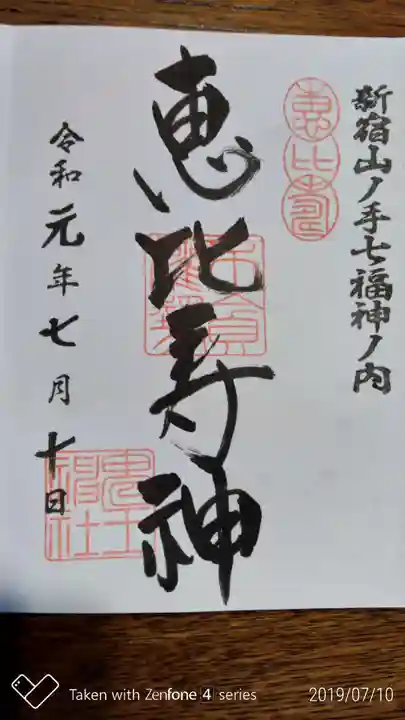 新宿山ノ手七福神ノ内
恵比寿
恵比寿神
令和元年七月十日
Taken with Zenfone 4 series
2019/07/10